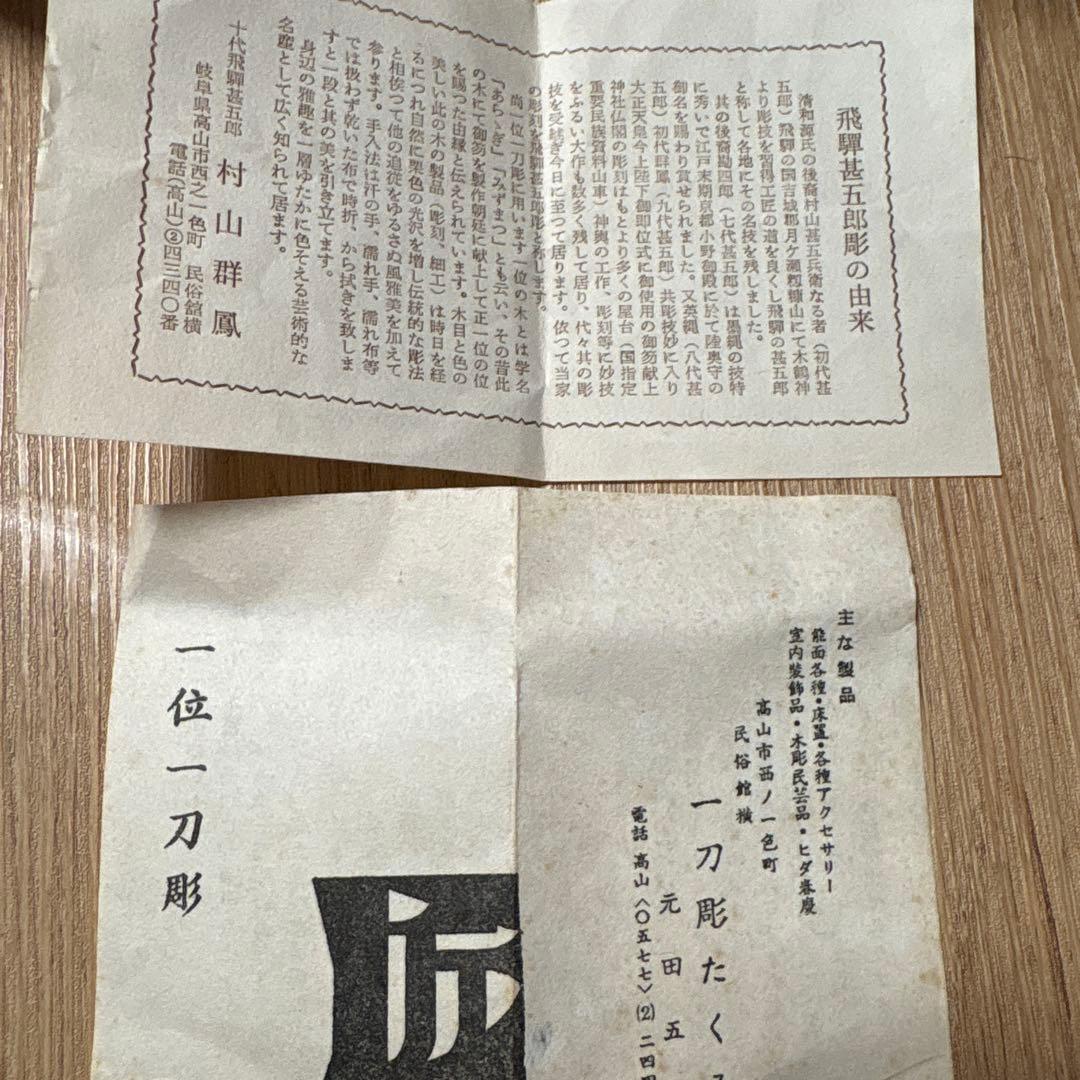 飛驒甚五郎彫の由来
清和源氏の後裔村山甚五兵衛なる者（初代甚
五郎）飛驒の国吉城郡月ケ瀬粔糠山にて木鶴神
より彫技を習得工匠の道を良くし飛驒の甚五郎
と称して各地にその名技を残しました。
其の後裔勘四郎（七代甚五郎）は墨縄の技特
に秀いで江戸末期京都小野御殿に於て陸奥守の
御名を賜わり賞せられました。又英縄（八代甚
五郎）初代群鳳（九代甚五郎）共彫技妙に入り
大正天皇今上陛下御即位式に御使用の御笏献上
神社仏閣の彫刻はもとより多くの屋台（国指定
重要民族資料山車）神輿の工作、彫刻等に妙技
をふるい大作も数多く残して居り、代々其の彫
技を受継ぎ今日に至つて居ります。依つて当家
の彫刻を飛驒甚五郎彫と称します。
尚一位一刀彫に用います一位の木とは学名
「あらゝぎ」「みずまつ」とも云い、その昔此
の木にて御笏を製作朝廷に献上して正一位の位
を賜つた由縁と伝えられています。木目と色の
美しい此の木の製品（彫刻、細工）は時日を経
るにつれ自然に栗色の光沢を増し伝統的な彫法
と相俟つて他の追従をゆるさぬ風雅美を加えて
参ります。手入法は汗の手、濡れ手、濡れ布等
では扱わず乾いた布で時折、から拭きを致しま
すと一段と其の美を引き立てます。
身辺の雅趣を一層ゆたかに色そえる芸術的な
名産として広く知られて居ます。
岐阜県高山市西之一色町　民俗舘横
十代飛驒甚五郎　村山群鳳
電話（高山）②四三四〇番
主な製品
能面各種・床置・各種アクセサリー
室内装飾品・木彫民芸品・ヒダ春慶
高山市西ノ一色町
民俗館横
一刀彫たく
元田五
電話 高山〈〇五七七〉(2)二四
一位一刀彫
匠